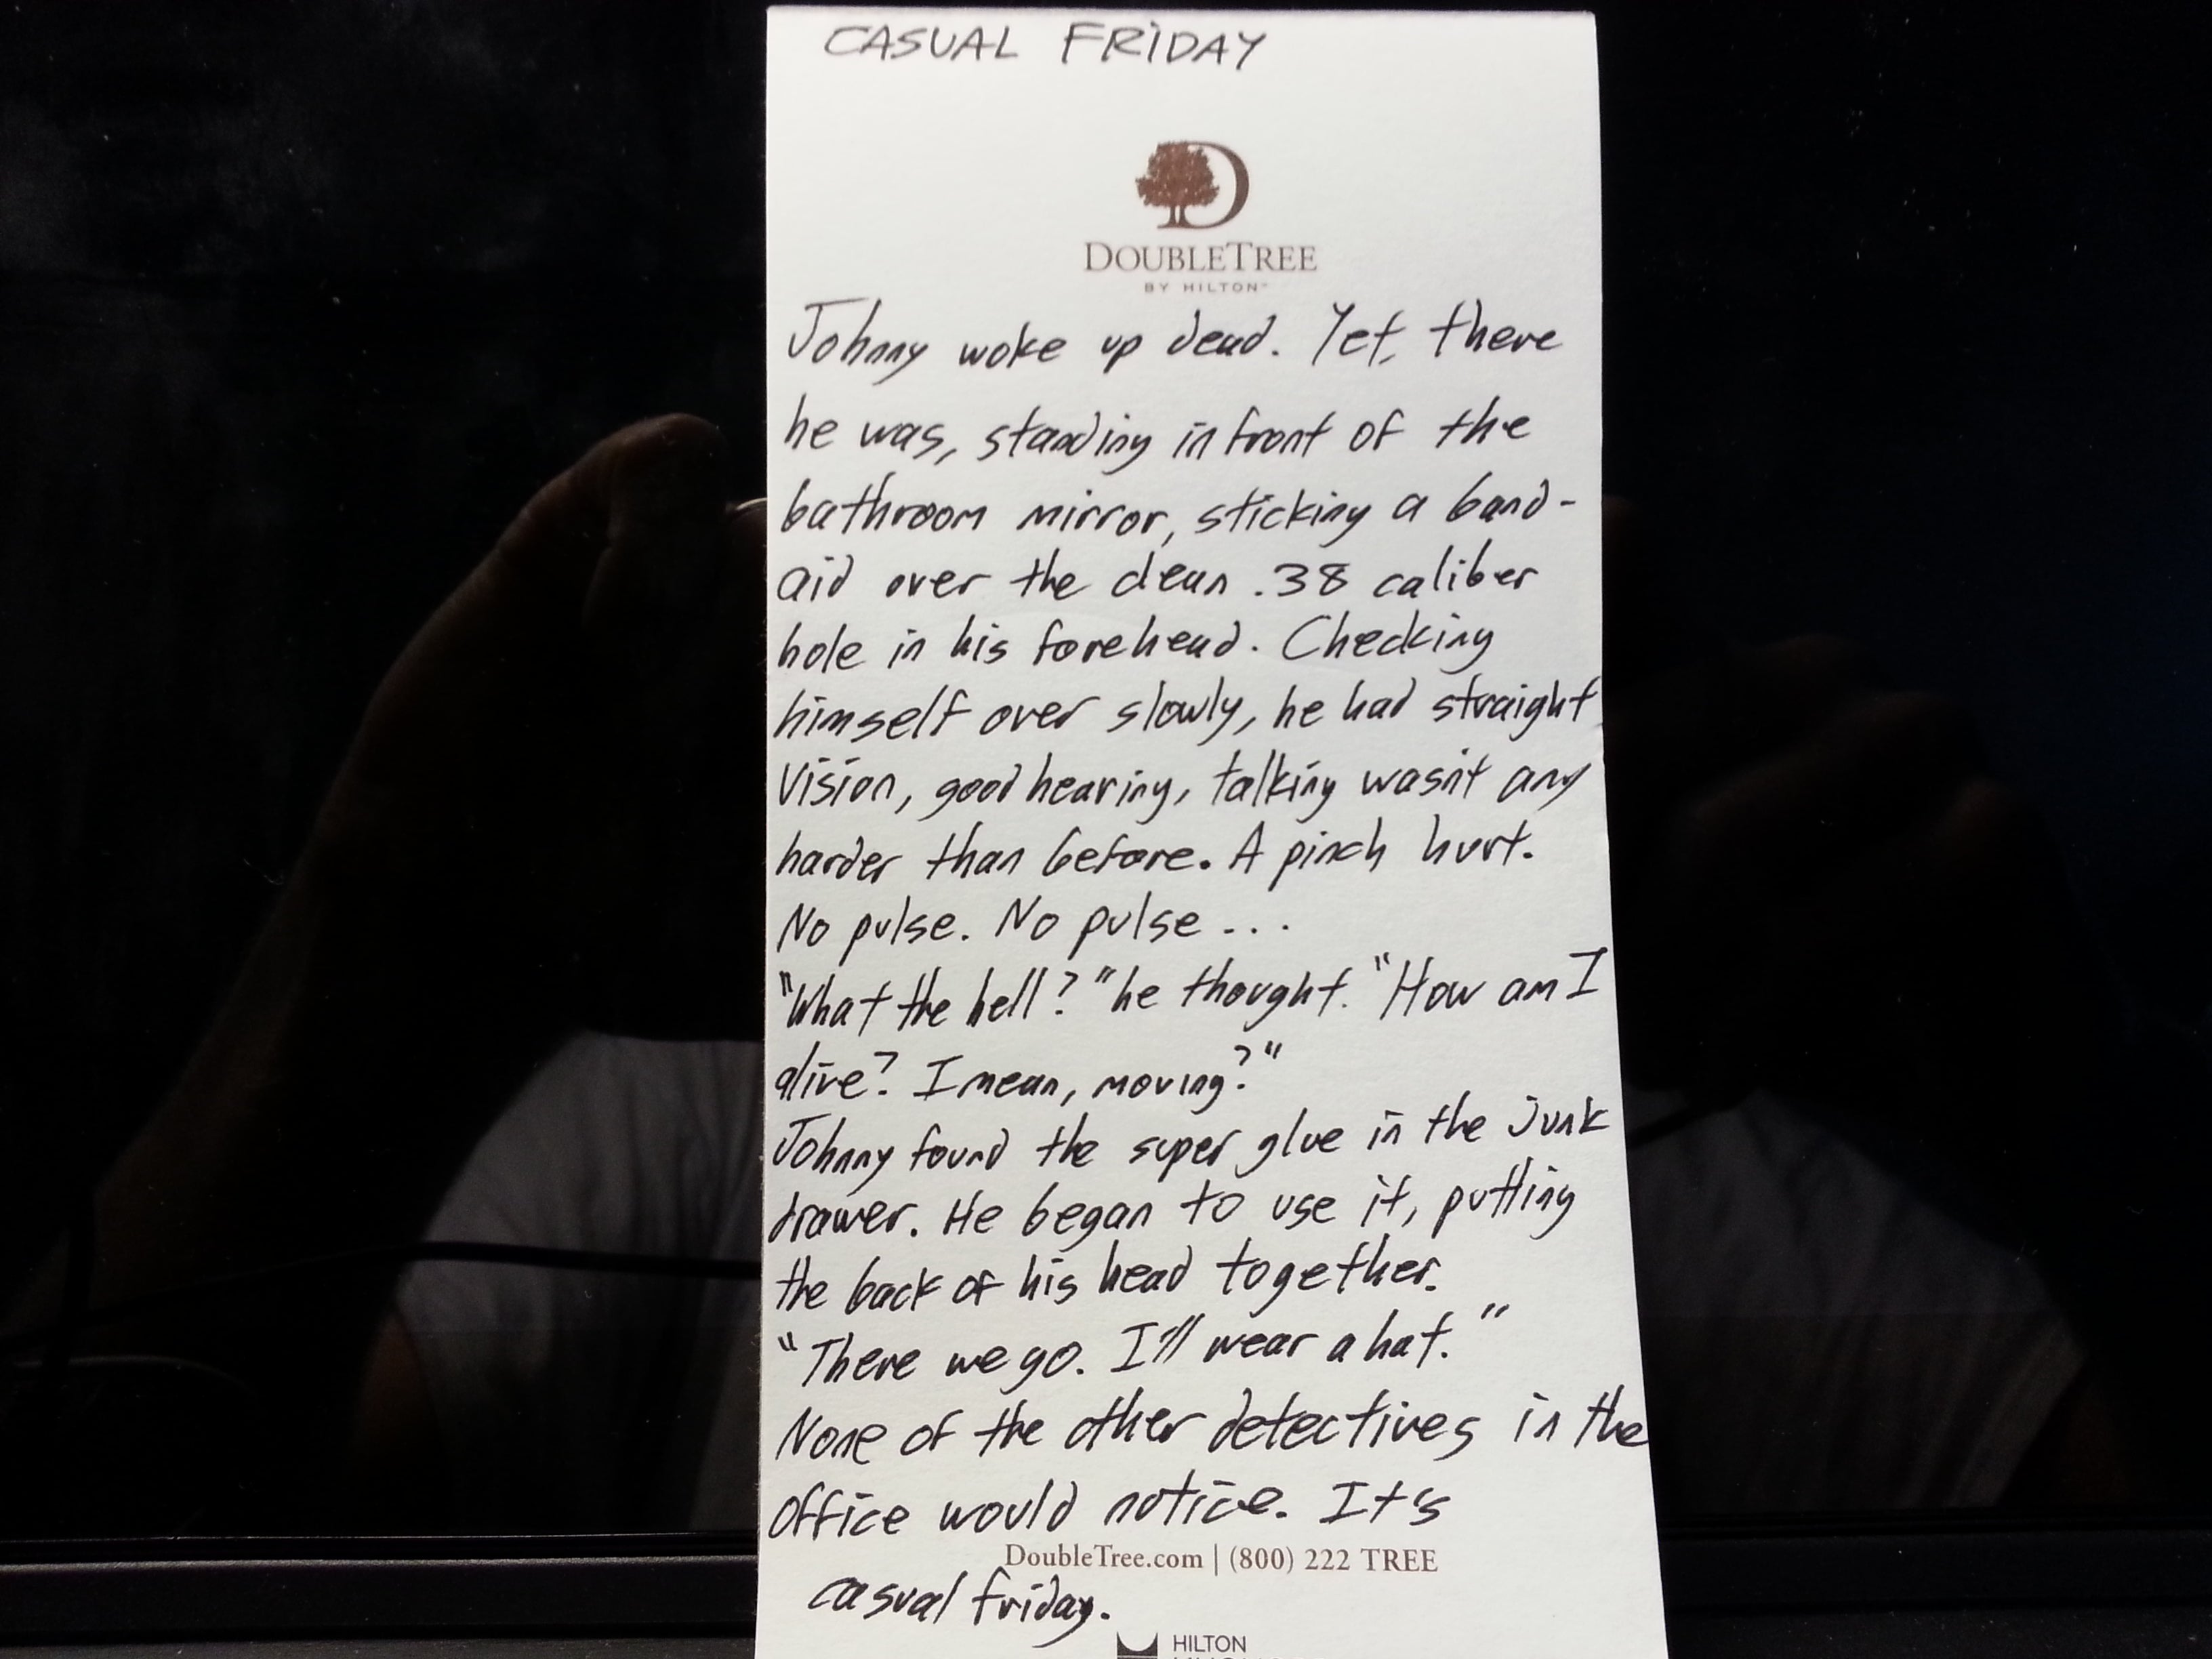 CASUAL FRIDAY
D
DOUBLETREE
BY HILTON™
Johnny woke up dead. Yet, there
he was, standing in front of the
bathroom mirror, sticking a band-
aid over the clean .38 caliber
hole in his forehead. Checking
himself over slowly, he had straight
vision, good hearing, talking wasn't any
harder than before. A pinch hurt.
No pulse. No pulse...
"What the hell?" he thought. "How am I
alive? I mean, moving?"
Johnny found the super glue in the junk
drawer. He began to use it, putting
the back of his head together.
"There we go. I'll wear a hat."
None of the other detectives in the
office would notice. It's
DoubleTree.com | (800) 222 TREE
casual friday.
HILTON